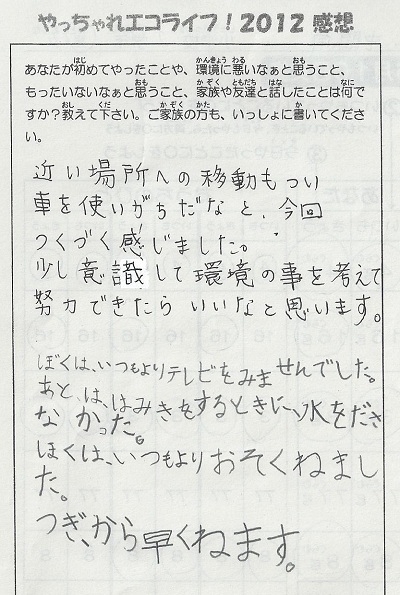 やっちゃれエコライフ！2012 感想
あなたが初めてやったことや、環境に悪いなぁと思うこと、
もったいないなぁと思うこと、家族や友達と話したことは何で
すか？教えて下さい。ご家族の方も、いっしょに書いてくださ
い。
近い場所への移動もつい
車を使いがちだなと、今回
つくづく感じました。
少し意識して環境の事を考えて
努力できたらいいなと思います。
ぼくは、いつもよりテレビをみませんでした。
あと、は、はみきをするときに、水をださ
なかった。
ぼくは、いつもよりおそくねまし
た。
つぎから早くねます。